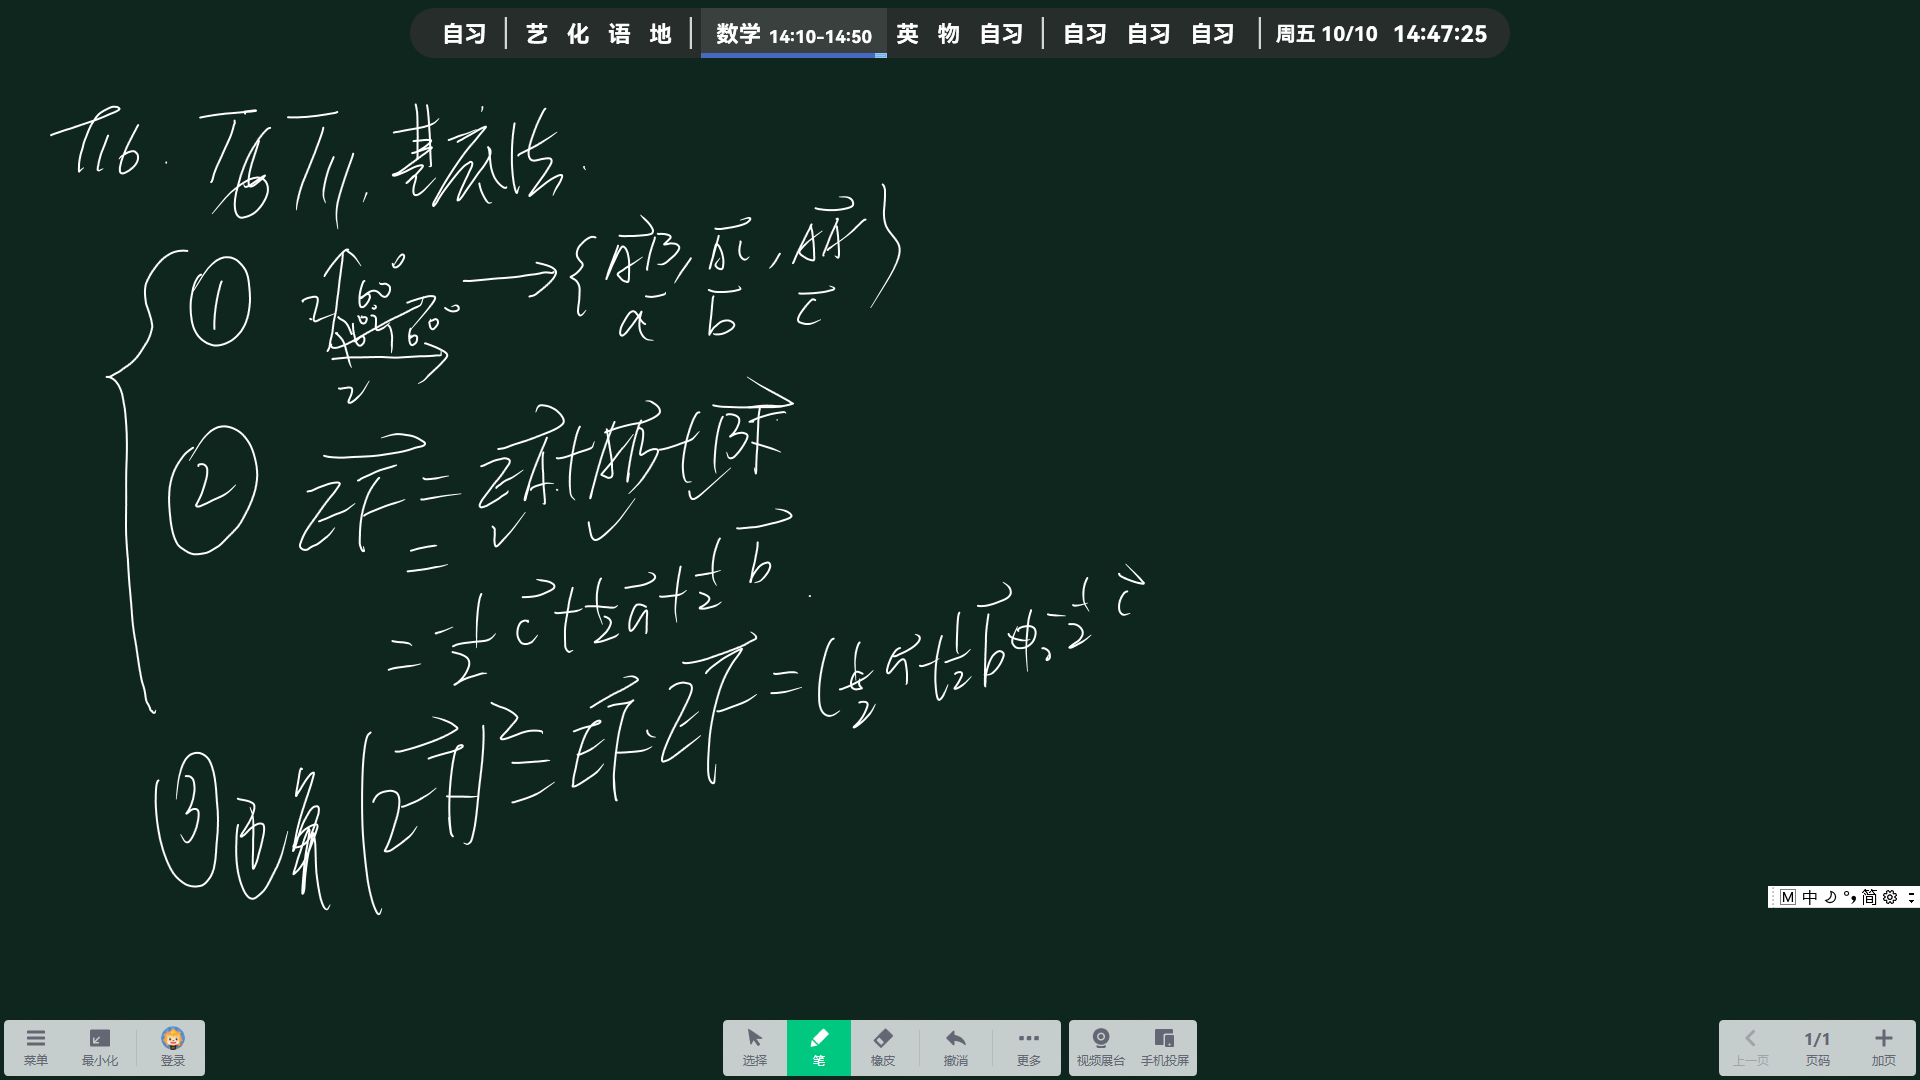 自习 | 艺 化 语 地 | 数学 14:10-14:50 英 物 自习 | 自习 自习 自习 | 周五 10/10 14:47:25
T16. T6 T11. 基底法.
① 2 60° 60° 60° 2 2 → {AB, AC, AA'}
a b c
② EF = EA + AB + BF
=
= -1/2 c + 1/2 a + 1/2 b
③ |EF|² = EF · EF = (1/2 a + 1/2 b - 1/2 c
M 中 简
菜单 最小化 登录 选择 笔 橡皮 撤消 更多 视频展台 手机投屏 上一页 1/1 页码 加页